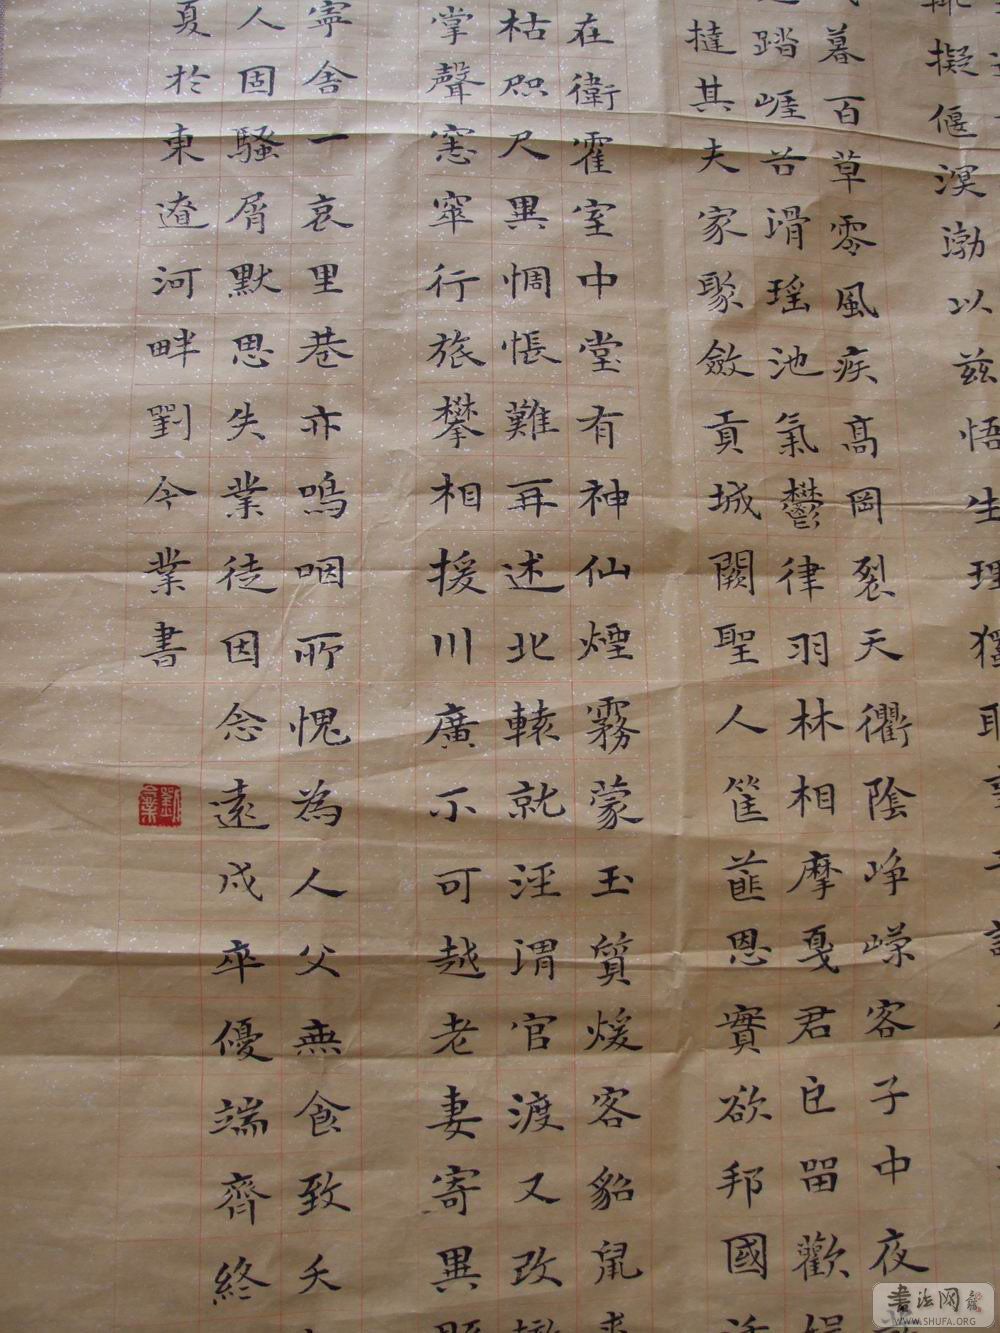 擬偃溟渤以茲悟生理獨耻事干
暮百草零風疾高岡裂天衢陰崢嶸客子中夜
踏崕谷滑瑤池氣鬱律羽林相摩戛君臣留歡
撻其夫家聚斂貢城闕聖人筐篚恩實欲邦國
在衛霍室中堂有神仙煙霧蒙玉質煖客貂鼠裘
枯咫尺異惆悵難再述北轅就涇渭官渡又改轍
掌聲窸窣行旅攀相援川廣不可越老妻寄異縣
寧舍一哀里巷亦嗚咽所愧為人父無食致夭
人固騷屑默思失業徒因念遠戍卒優端齊終
夏於東遼河畔劉今業書
劉今業
書法网
WWW.SHUFA.ORG